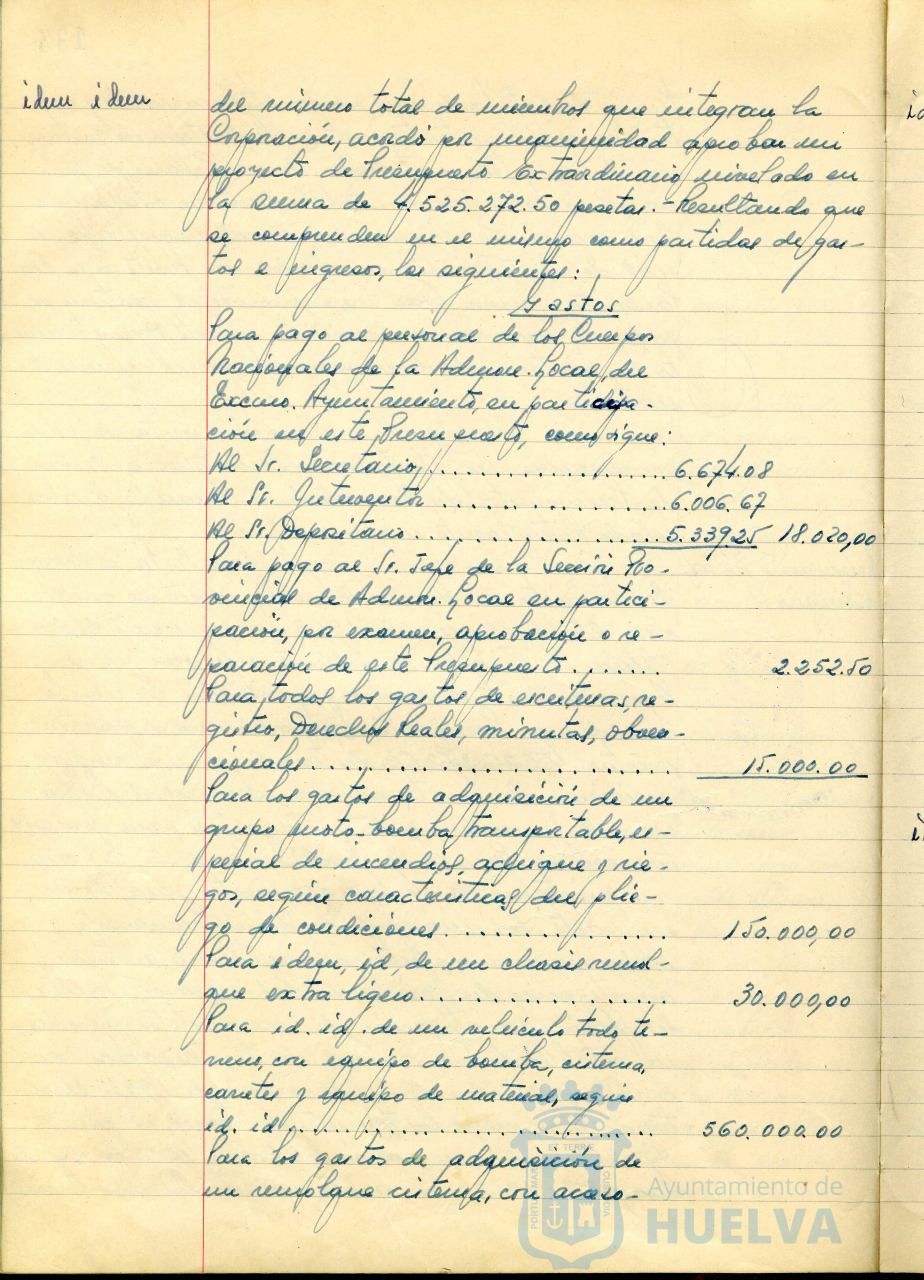 idem idem
del número total de miembros que integran la
Corporación, acordó por unanimidad aprobar un
proyecto de Presupuesto Extraordinario nivelado en
la suma de 4.525.272.50 pesetas.- Resultando que
se comprenden en el mismo como partidas de gas-
tos e ingresos, las siguientes:
Gastos
Para pago al personal de los Cuerpos
Nacionales de la Admon. Local, del
Excmo. Ayuntamiento, en participa-
ción en este Presupuesto, como sigue:
Al Sr. Secretario, ........................ 6.674.08
Al Sr. Interventor ........................ 6.006.67
Al Sr. Depositario ........................ 5.339.25 18.020,00
Para pago al Sr. Jefe de la Sección Pro-
vincial de Admon. Local en partici-
pación, por examen, aprobación o re-
paración de este Presupuesto ...... 2.252.50
Para todos los gastos de escrituras, re-
gistro, Derechos Reales, minutas, obven-
cionales ........................ 15.000.00
Para los gastos de adquisición de un
grupo moto-bomba transportable, es-
pecial de incendios, achique y rie-
gos, según características del plie-
go de condiciones ............... 150.000,00
Para idem, id, de un chasis remol-
que extra ligero ................. 30.000,00
Para id. id. de un vehículo todo te-
rreno, con equipo de bomba, cisterna,
carretes y equipo de material, según
id. id ........................ 560.000.00
Para los gastos de adquisición de
un remolque cisterna, con acceso-
PORTUS MARIS
ET TERRE
Ayuntamiento de
HUELVA